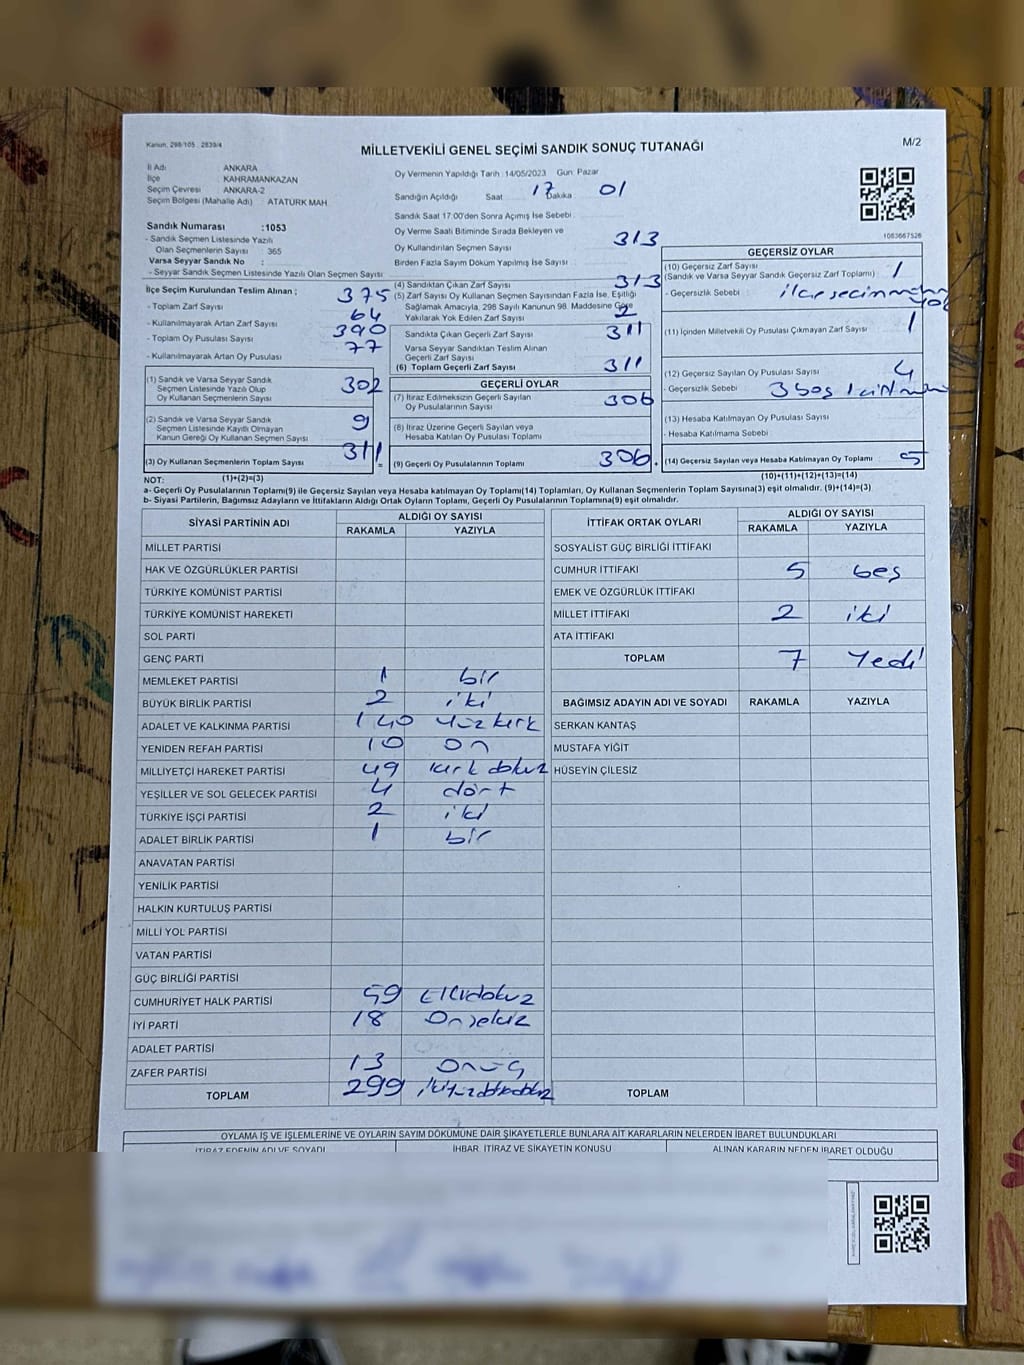 Kanun, 298/105 , 2839/4
MİLLETVEKİLİ GENEL SEÇİMİ SANDIK SONUÇ TUTANAĞI
M/2
İl Adı : ANKARA
İlçe : KAHRAMANKAZAN
Seçim Çevresi : ANKARA-2
Seçim Bölgesi (Mahalle Adı) : ATATÜRK MAH
Sandık Numarası :1053
- Sandık Seçmen Listesinde Yazılı
Olan Seçmenlerin Sayısı : 365
Varsa Seyyar Sandık No :
- Seyyar Sandık Seçmen Listesinde Yazılı Olan Seçmen Sayısı :
Oy Vermenin Yapıldığı Tarih :14/05/2023 Gün: Pazar
Sandığın Açıldığı Saat 17 Dakika 01
Sandık Saat 17:00'den Sonra Açılmış İse Sebebi :
Oy Verme Saati Bitiminde Sırada Bekleyen ve
Oy Kullandırılan Seçmen Sayısı 313
Birden Fazla Sayım Döküm Yapılmış İse Sayısı
1063667526
İlçe Seçim Kurulundan Teslim Alınan ;
- Toplam Zarf Sayısı 375
- Kullanılmayarak Artan Zarf Sayısı 64
- Toplam Oy Pusulası Sayısı 390
- Kullanılmayarak Artan Oy Pusulası 77
(1) Sandık ve Varsa Seyyar Sandık
Seçmen Listesinde Yazılı Olup
Oy Kullanan Seçmenlerin Sayısı 302
(2) Sandık ve Varsa Seyyar Sandık
Seçmen Listesinde Kayıtlı Olmayan
Kanun Gereği Oy Kullanan Seçmen Sayısı 9
(3) Oy Kullanan Seçmenlerin Toplam Sayısı 311
(4) Sandıktan Çıkan Zarf Sayısı 313
(5) Zarf Sayısı Oy Kullanan Seçmen Sayısından Fazla İse, Eşitliği
Sağlamak Amacıyla, 298 Sayılı Kanunun 98. Maddesine Göre
Yakılarak Yok Edilen Zarf Sayısı 2
Sandıkta Çıkan Geçerli Zarf Sayısı 311
Varsa Seyyar Sandıktan Teslim Alınan
Geçerli Zarf Sayısı
(6) Toplam Geçerli Zarf Sayısı 311
GEÇERLİ OYLAR
(7) İtiraz Edilmeksizin Geçerli Sayılan
Oy Pusulalarının Sayısı 306
(8) İtiraz Üzerine Geçerli Sayılan veya
Hesaba Katılan Oy Pusulası Toplamı
(9) Geçerli Oy Pusulalarının Toplamı 306
GEÇERSİZ OYLAR
(10) Geçersiz Zarf Sayısı
(Sandık ve Varsa Seyyar Sandık Geçersiz Zarf Toplamı) 1
- Geçersizlik Sebebi : yok
(11) İçinden Milletvekili Oy Pusulası Çıkmayan Zarf Sayısı 1
(12) Geçersiz Sayılan Oy Pusulası Sayısı 4
- Geçersizlik Sebebi : 3 boş 1
(13) Hesaba Katılmayan Oy Pusulası Sayısı
- Hesaba Katılmama Sebebi :
(14) Geçersiz Sayılan veya Hesaba Katılmayan Oy Toplamı 5
NOT: (1)+(2)=(3) (10)+(11)+(12)+(13)=(14)
a- Geçerli Oy Pusulalarının Toplamı(9) ile Geçersiz Sayılan veya Hesaba katılmayan Oy Toplamı(14) Toplamları, Oy Kullanan Seçmenlerin Toplam Sayısına(3) eşit olmalıdır. (9)+(14)=(3)
b- Siyasi Partilerin, Bağımsız Adayların ve İttifakların Aldığı Ortak Oyların Toplamı, Geçerli Oy Pusulalarının Toplamına(9) eşit olmalıdır.
SİYASİ PARTİNİN ADI ALDIĞI OY SAYISI
RAKAMLA YAZIYLA
MİLLET PARTİSİ
HAK VE ÖZGÜRLÜKLER PARTİSİ
TÜRKİYE KOMÜNİST PARTİSİ
TÜRKİYE KOMÜNİST HAREKETİ
SOL PARTİ
GENÇ PARTİ
MEMLEKET PARTİSİ 1 bir
BÜYÜK BİRLİK PARTİSİ 2 iki
ADALET VE KALKINMA PARTİSİ 140 yüzkırk
YENİDEN REFAH PARTİSİ 10 on
MİLLİYETÇİ HAREKET PARTİSİ 49 kırk dokuz
YEŞİLLER VE SOL GELECEK PARTİSİ 4 dört
TÜRKİYE İŞÇİ PARTİSİ 2 iki
ADALET BİRLİK PARTİSİ 1 bir
ANAVATAN PARTİSİ
YENİLİK PARTİSİ
HALKIN KURTULUŞ PARTİSİ
MİLLİ YOL PARTİSİ
VATAN PARTİSİ
GÜÇ BİRLİĞİ PARTİSİ
CUMHURİYET HALK PARTİSİ 59 Ellidokuz
İYİ PARTİ 18 Onsekiz
ADALET PARTİSİ
ZAFER PARTİSİ 13 Onüç
TOPLAM 299 ikiyüzdoksandokuz
İTTİFAK ORTAK OYLARI ALDIĞI OY SAYISI
RAKAMLA YAZIYLA
SOSYALİST GÜÇ BİRLİĞİ İTTİFAKI
CUMHUR İTTİFAKI 5 beş
EMEK VE ÖZGÜRLÜK İTTİFAKI
MİLLET İTTİFAKI 2 iki
ATA İTTİFAKI
TOPLAM 7 Yedi
BAĞIMSIZ ADAYIN ADI VE SOYADI RAKAMLA YAZIYLA
SERKAN KANTAŞ
MUSTAFA YİĞİT
HÜSEYİN ÇİLESİZ
TOPLAM
OYLAMA İŞ VE İŞLEMLERİNE VE OYLARIN SAYIM DÖKÜMÜNE DAİR ŞİKAYETLERLE BUNLARA AİT KARARLARIN NELERDEN İBARET BULUNDUKLARI
İTİRAZ EDENİN ADI VE SOYADI İHBAR, İTİRAZ VE ŞİKAYETİN KONUSU ALINAN KARARIN NEDEN İBARET OLDUĞU